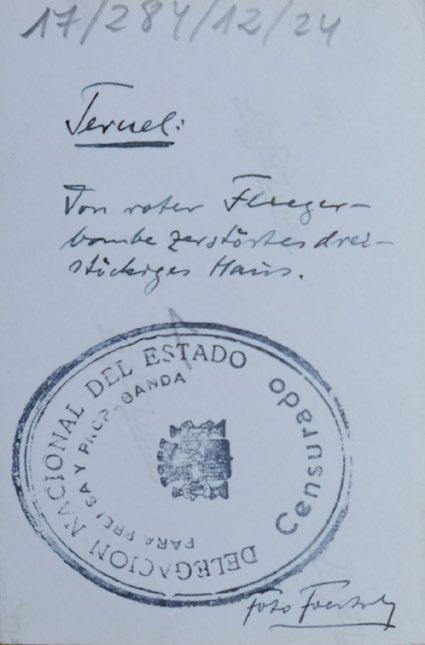 17/284/12/24
Teruel:
Von roter Flieger-
bombe zerstörtes drei-
stöckiges Haus.
DELEGACION NACIONAL DEL ESTADO
PARA PRENSA Y PROPAGANDA
Censurado
Foto